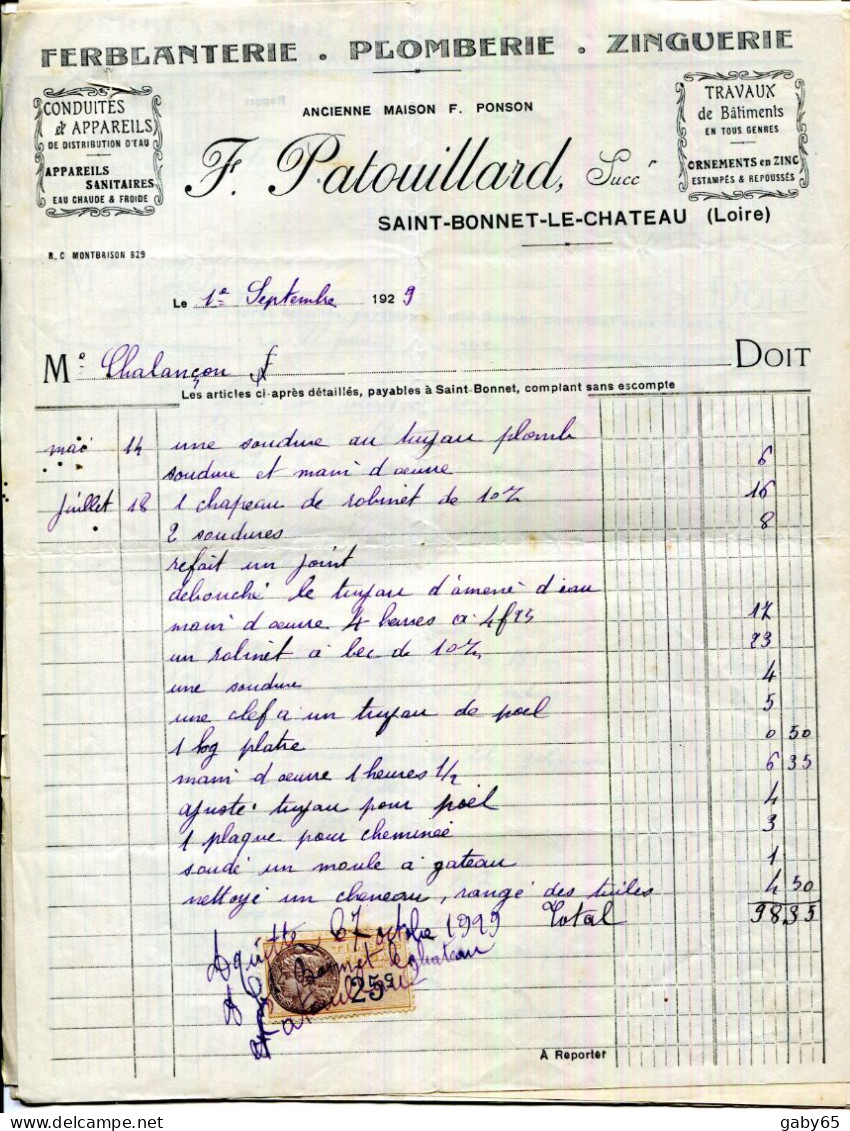 FERBLANTERIE . PLOMBERIE . ZINGUERIE
CONDUITES
& APPAREILS
DE DISTRIBUTION D'EAU
APPAREILS
SANITAIRES
EAU CHAUDE & FROIDE
ANCIENNE MAISON F. PONSON
F. Patouillard, Succr
SAINT-BONNET-LE-CHATEAU (Loire)
TRAVAUX
de Bâtiments
EN TOUS GENRES
ORNEMENTS en ZINC
ESTAMPÉS & REPOUSSÉS
R.C MONTBRISON 829
Le 1e Septembre 1929
M Chalançon f DOIT
Les articles ci-après détaillés, payables à Saint-Bonnet, comptant sans escompte
mai 14 une soudure au tuyau plomb
soudure et main d'œuvre 6
juillet 18 1 chapeau de robinet de 10% 16
2 soudures 8
refait un joint
débouché le tuyau d'amené d'eau
main d'œuvre 4 heures a 4f25 17
un robinet à bec de 10% 23
une soudure 4
une clef a un tuyau de poel 5
1 kg platre 0 50
main d'œuvre 1 heures 1/2 6 35
ajusté tuyau pour poël 4
1 plaque pour cheminée 3
soudé un moule a gateau 1
nettoyé un cheneau, rangé des tuiles 4 50
Total 98.35
Aquitté octobre 1929
Bonnet le Chateau
25c
A Reporter
delcampe.net
gaby65